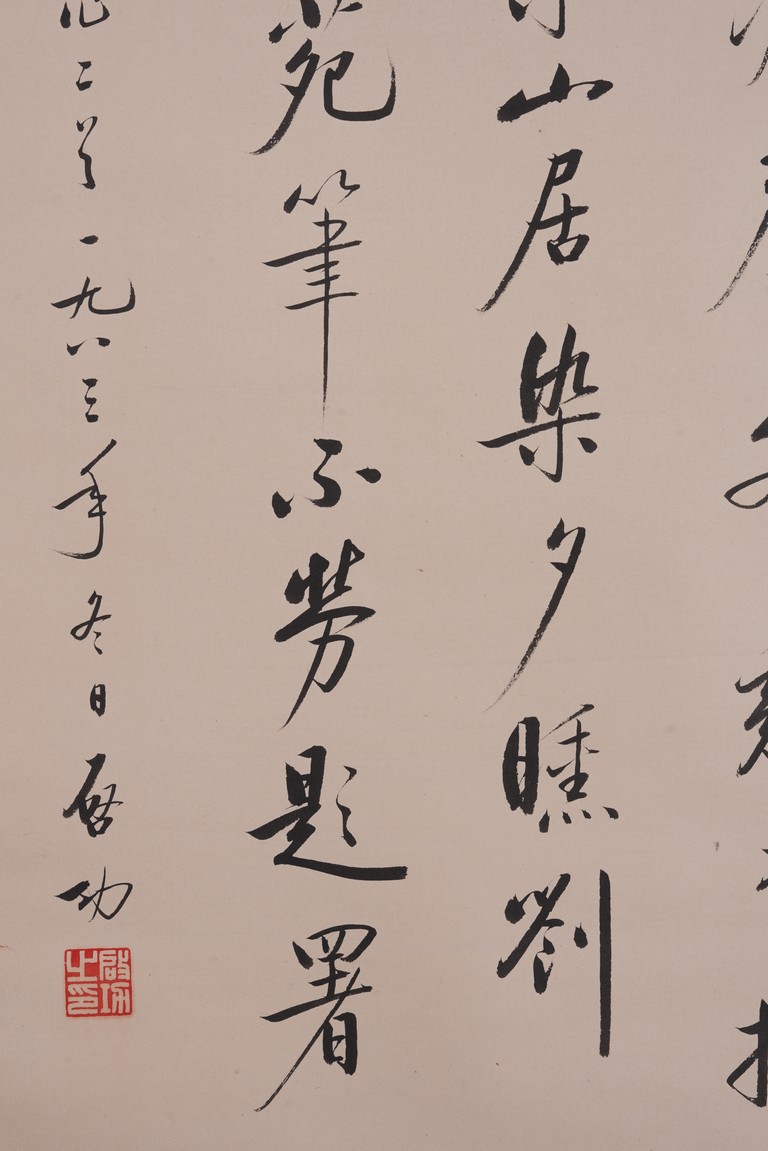 山居染夕曛劉
苑筆不勞題署
二首一九八三年冬日啓功
啟功之印